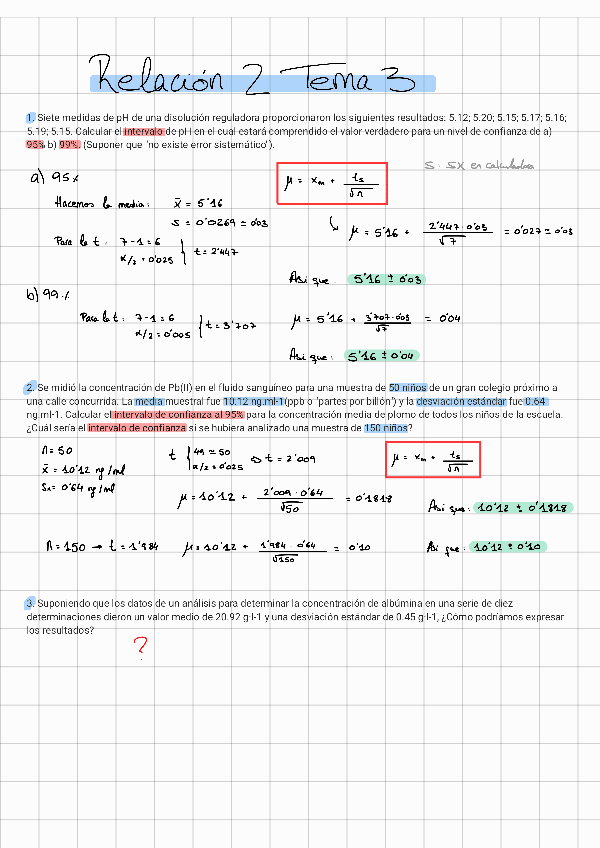 Relación 2 Tema 3
1. Siete medidas de pH de una disolución reguladora proporcionaron los siguientes resultados: 5.12; 5.20; 5.15; 5.17; 5.16;
5.19; 5.15. Calcular el intervalo de pH en el cual estará comprendido el valor verdadero para un nivel de confianza de a)
95% b) 99%. (Suponer que "no existe error sistemático").
S. SX en calculadora
a) 95%
μ = xm + ts/√n
Hacemos la media: x̄ = 5'16
S = 0'0269 ≈ 0'03
μ = 5'16 + 2'447·0'03/√7 = 0'027 ≈ 0'03
Para la t: 7-1 = 6
α/2 = 0'025
t = 2'447
Así que: 5'16 ± 0'03
b) 99%
Para la t: 7-1 = 6
α/2 = 0'005
t = 3'707
μ = 5'16 + 3'707·0'03/√7 = 0'04
Así que: 5'16 ± 0'04
2. Se midió la concentración de Pb(II) en el fluido sanguíneo para una muestra de 50 niños de un gran colegio próximo a
una calle concurrida. La media muestral fue 10.12 ng.ml-1(ppb o "partes por billón") y la desviación estándar fue 0.64
ng.ml-1. Calcular el intervalo de confianza al 95% para la concentración media de plomo de todos los niños de la escuela.
¿Cuál sería el intervalo de confianza si se hubiera analizado una muestra de 150 niños?
n = 50
x̄ = 10'12 ng/ml
Sx = 0'64 ng/ml
t 49 ≈ 50
α/2 = 0'025
⇒ t = 2'009
μ = xm + ts/√n
μ = 10'12 + 2'009·0'64/√50 = 0'1818
Así que: 10'12 ± 0'1818
n = 150 → t = 1'984 μ = 10'12 + 1'984·0'64/√150 = 0'10
Así que: 10'12 ± 0'10
3. Suponiendo que los datos de un análisis para determinar la concentración de albúmina en una serie de diez
determinaciones dieron un valor medio de 20.92 g·l-1 y una desviación estándar de 0.45 g·l-1, ¿Cómo podríamos expresar
los resultados?
?